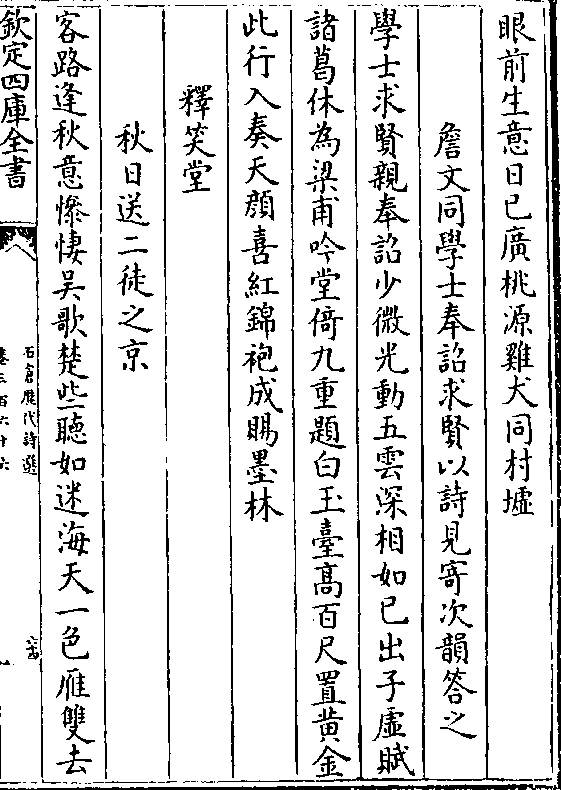 眼前生意日已廣桃源雞犬同村墟
詹文同學士奉詔求賢以詩見寄次韻答之
學士求賢親奉詔少微光動五雲深相如已出子虛賦
諸葛休為梁甫吟堂倚九重題白玉臺高百尺置黃金
此行入奏天顏喜紅錦袍成賜墨林
釋笑堂
秋日送二徒之京
客路逢秋意慘悽吳歌楚些聽如迷海天一色雁雙去
欽定四庫全書
石倉歷代詩選
卷三百六十六